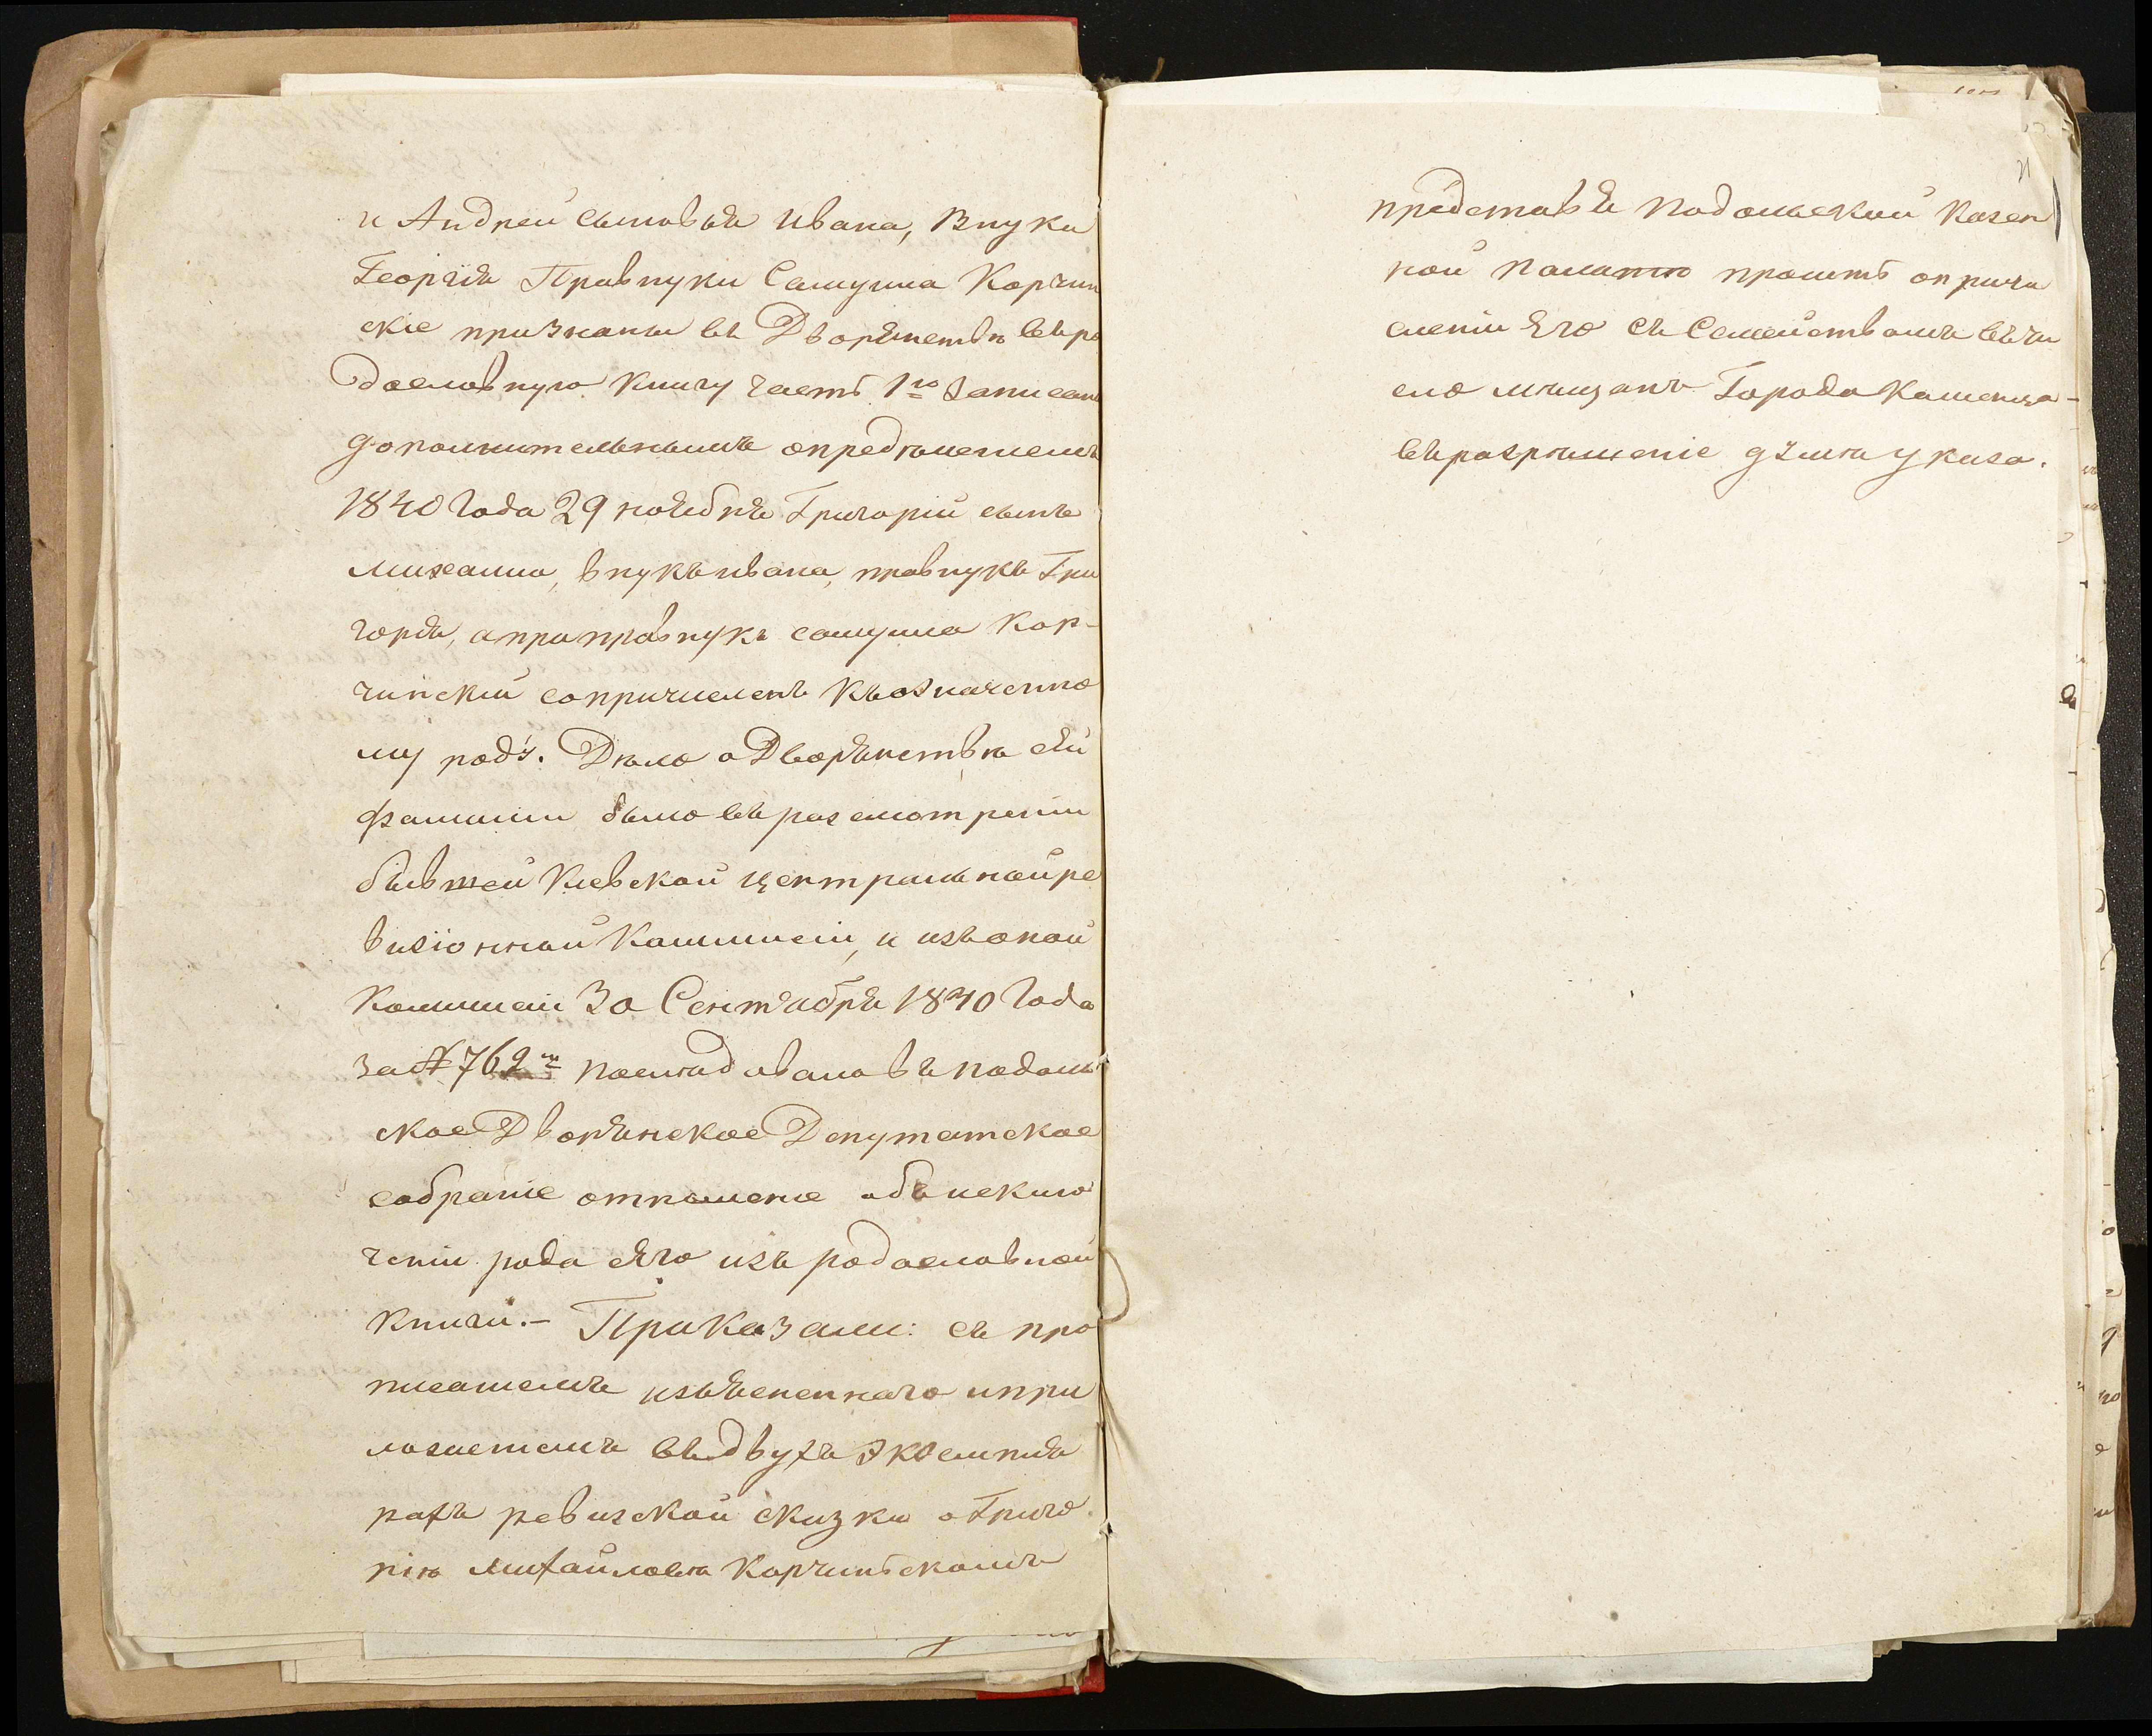 и Андрей сыновья Ивана, Внуки
Георгія Правнуки Самуила Корчин
скіе признаны въ Дворянствѣ въ ро
дословную книгу часть 1ю записаны
дополнительнымъ опредѣленіемъ
1840 года 29 ноября Григорій сынъ
Михаила, внукъ Ивана, правнукъ Гри
горія, а праправнукъ самуила Кор-
чинскій сопричисленъ къ означенно
му роду. Дѣло о Дворянствѣ сей
фамиліи было въ разсмотреніи
бывшей Кіевской центральной ре
визіонной Коммисіи, и изъ оной
Коммисіи 30 Сентября 1840 года
за № 762м послѣдовало въ подоль
ское Дворянское Депутатское
собраніе отношеніе объ исклю
ченіи рода его изъ родословной
книги.- Приказали: съ про
писаніемъ изъясненнаго и при
ложеніемъ въ двухъ экземпля
рахъ ревизской сказки о Григо
ріѣ Михайловѣ Корчинскомъ
представя Подольской Казен
ной Палатѣ просить о причи
сленіи его съ Семействомъ въ чи
сло мѣщанъ Города Каменца-
въ разрѣшеніе дѣла указа.